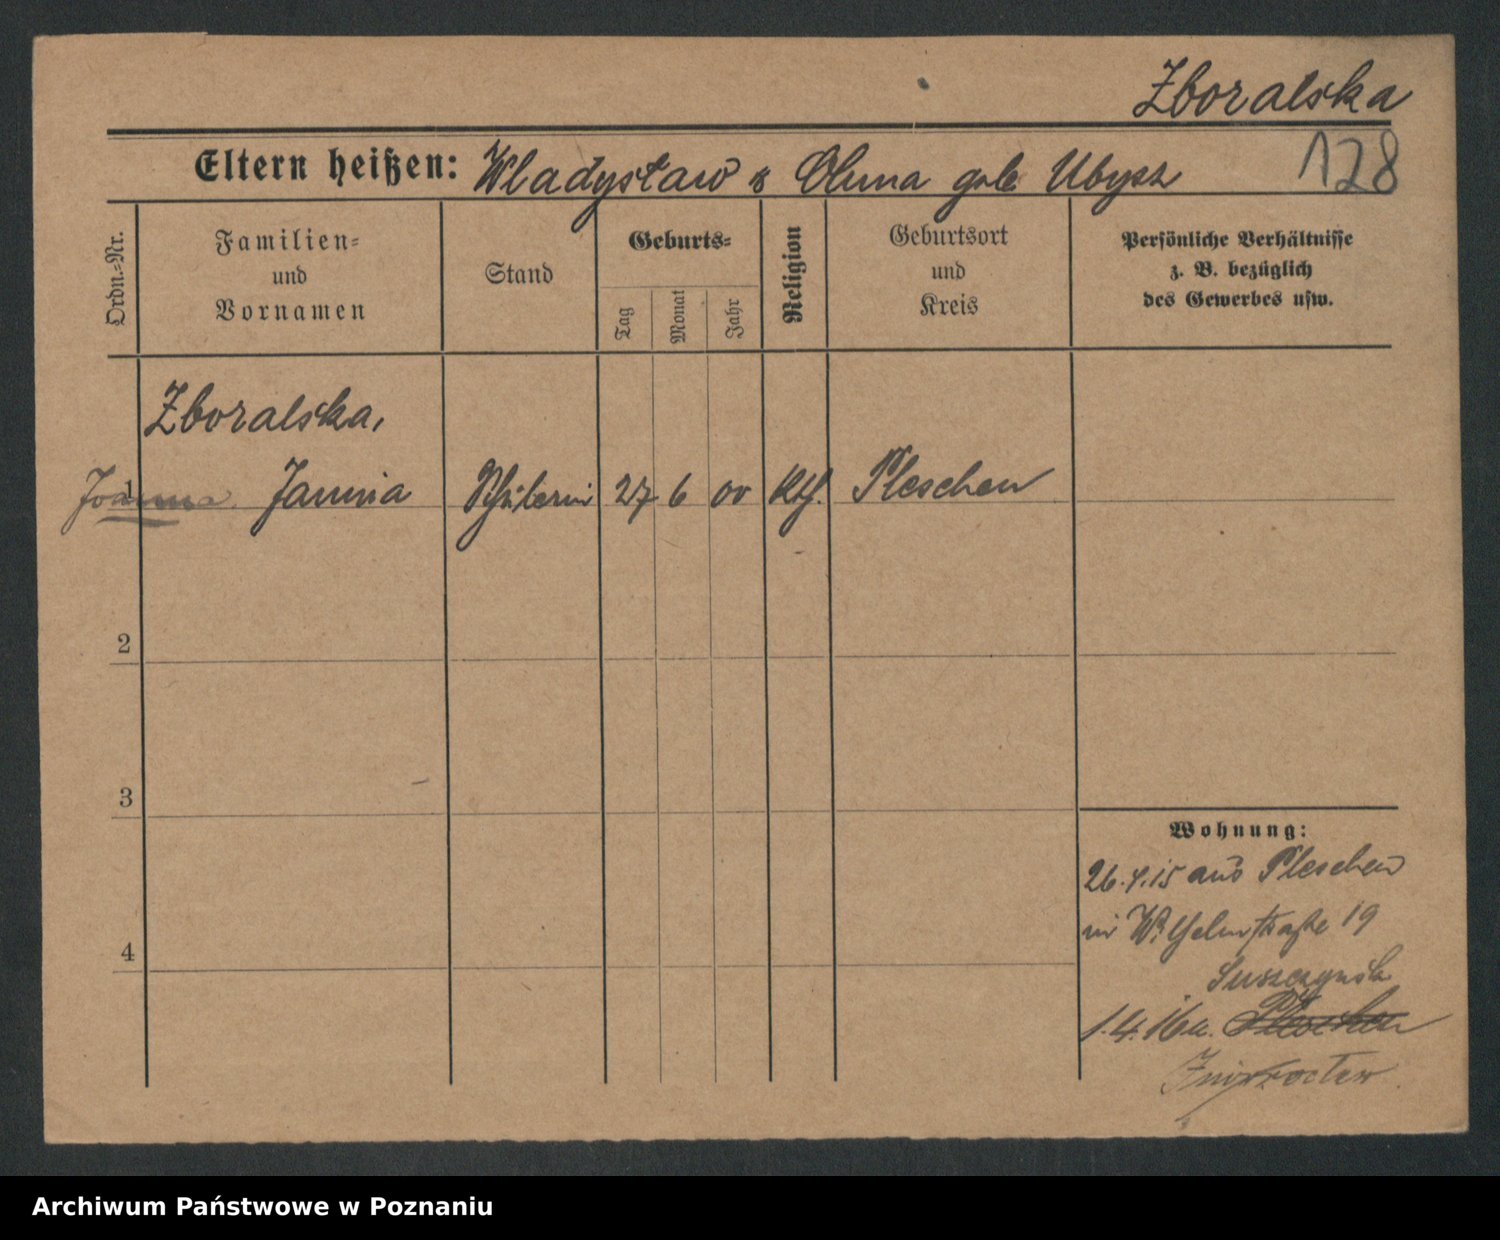 Zboralska
128
Eltern heißen: Wladysław & geb Ubysz
Ordn.=Nr.
Familien=
und
Vornamen
Stand
Geburts=
Tag
Monat
Jahr
Religion
Geburtsort
und
Kreis
Persönliche Verhältnisse
z. B. bezüglich
des Gewerbes usw.
Zboralska,
1 Joanna. Janina Schülerin 27 6 00 kth. Pleschen
2
3
4
Wohnung:
26.4.15 aus Pleschen
in Wilhelmstraße 19
1.4.16 n. Pleschen
Archiwum Państwowe w Poznaniu